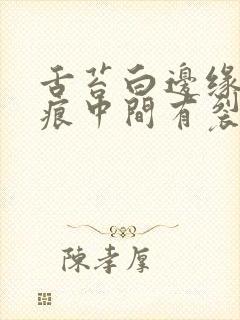 舌苔白邊緣
痕中間有裂
陳孝厚